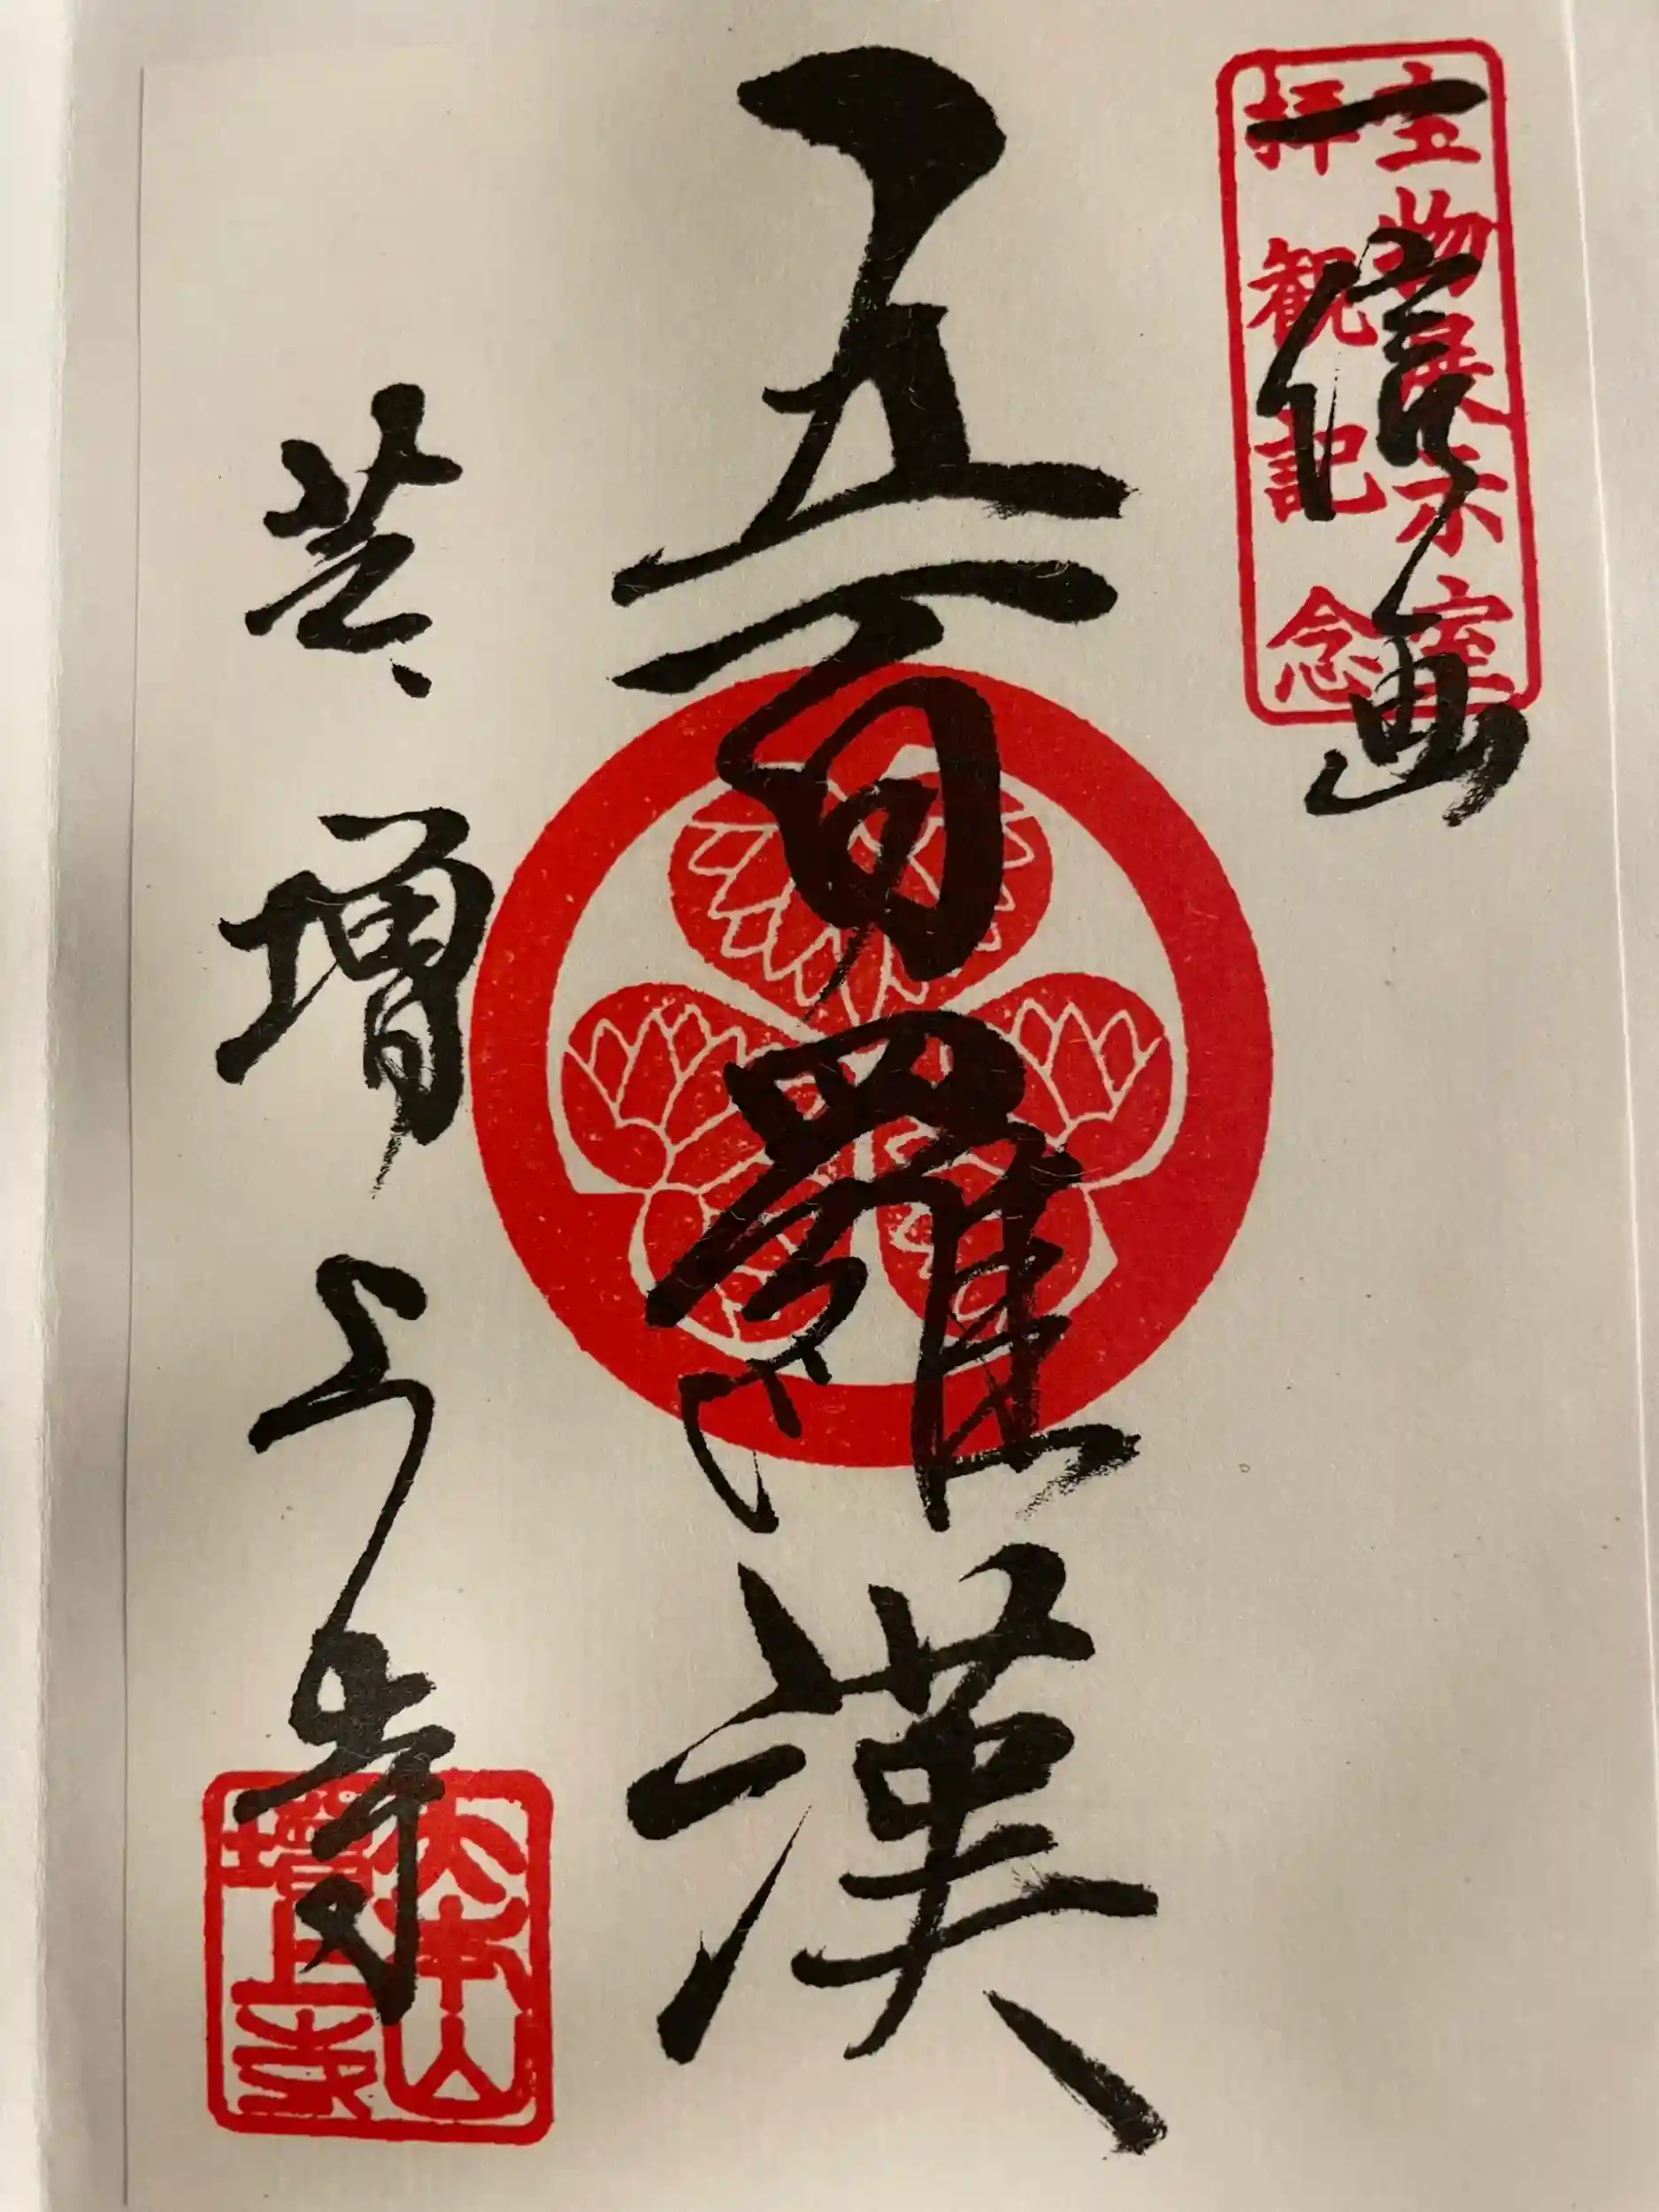 宝物展示室
拝観記念
一信画
五百羅漢
芝増上寺
大本山
増上寺